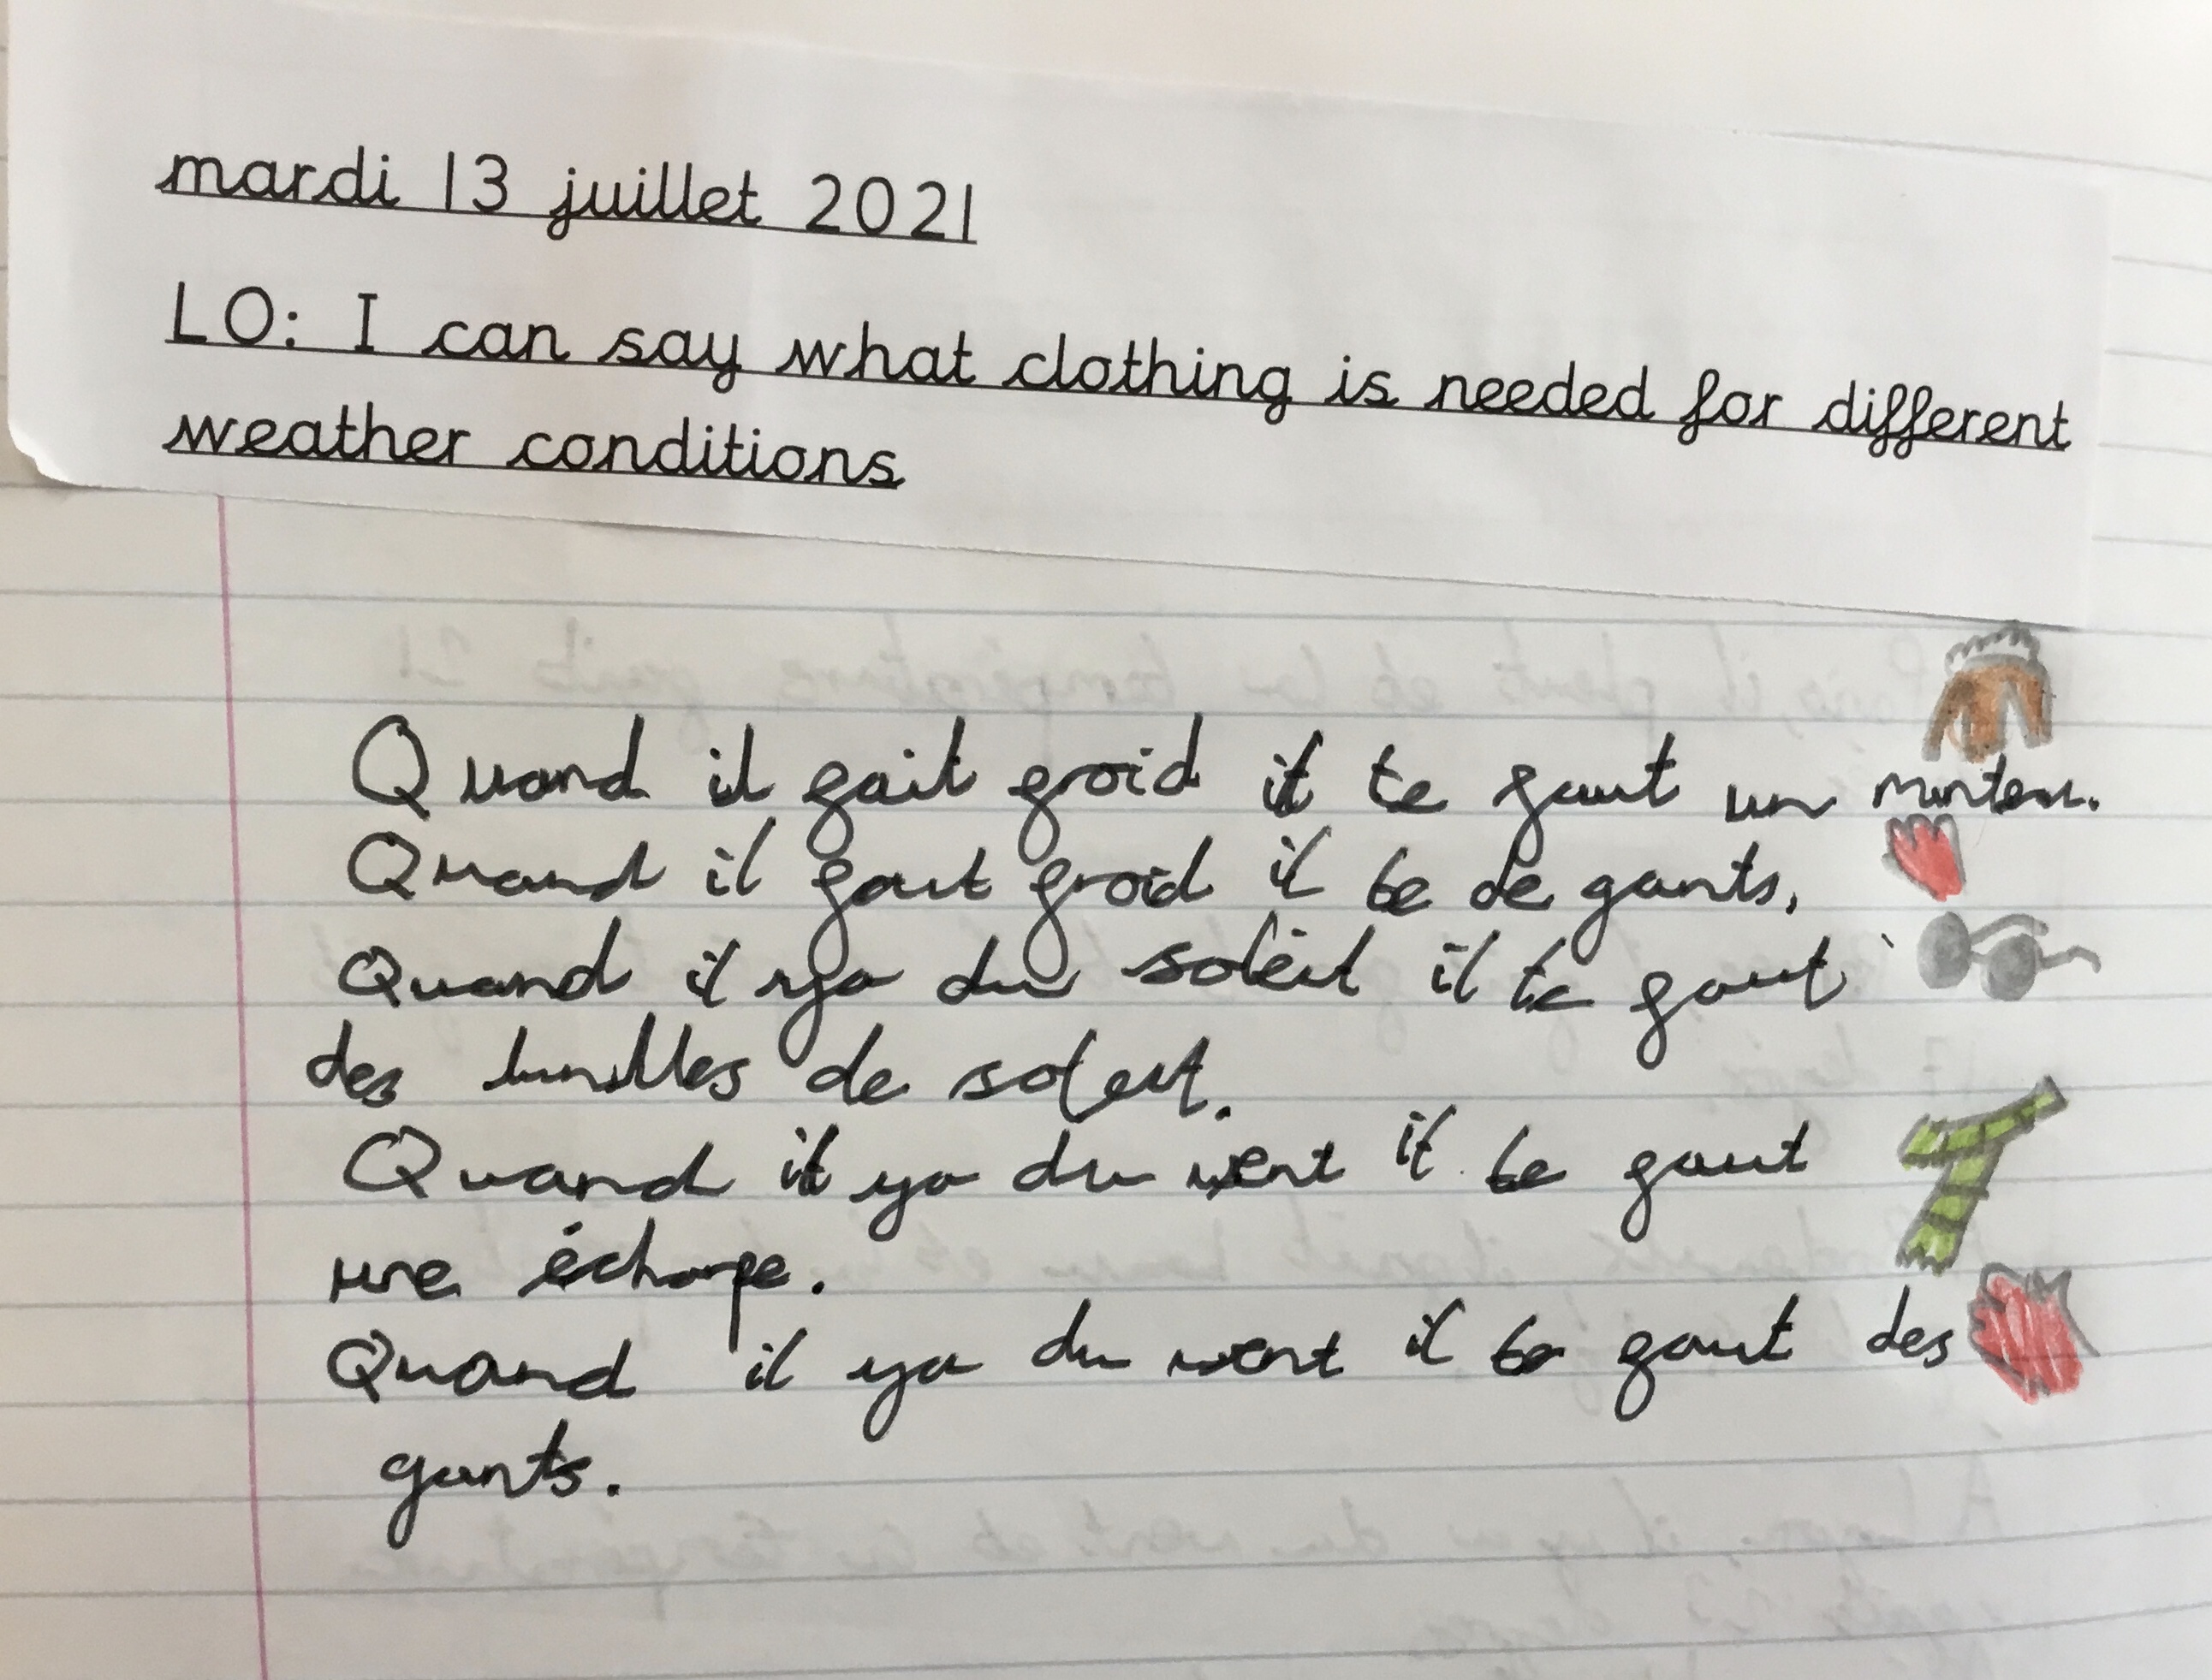 mardi 13 juillet 2021
LO: I can say what clothing is needed for different
weather conditions
Quand il fait froid it te faut un manteau.
Quand il faut froid il te de gants.
Quand il ya du soleil il te faut
des lunilles de soleil.
Quand it ya du vent il te faut
une écharpe.
Quand il ya du vent il te faut des
gants.